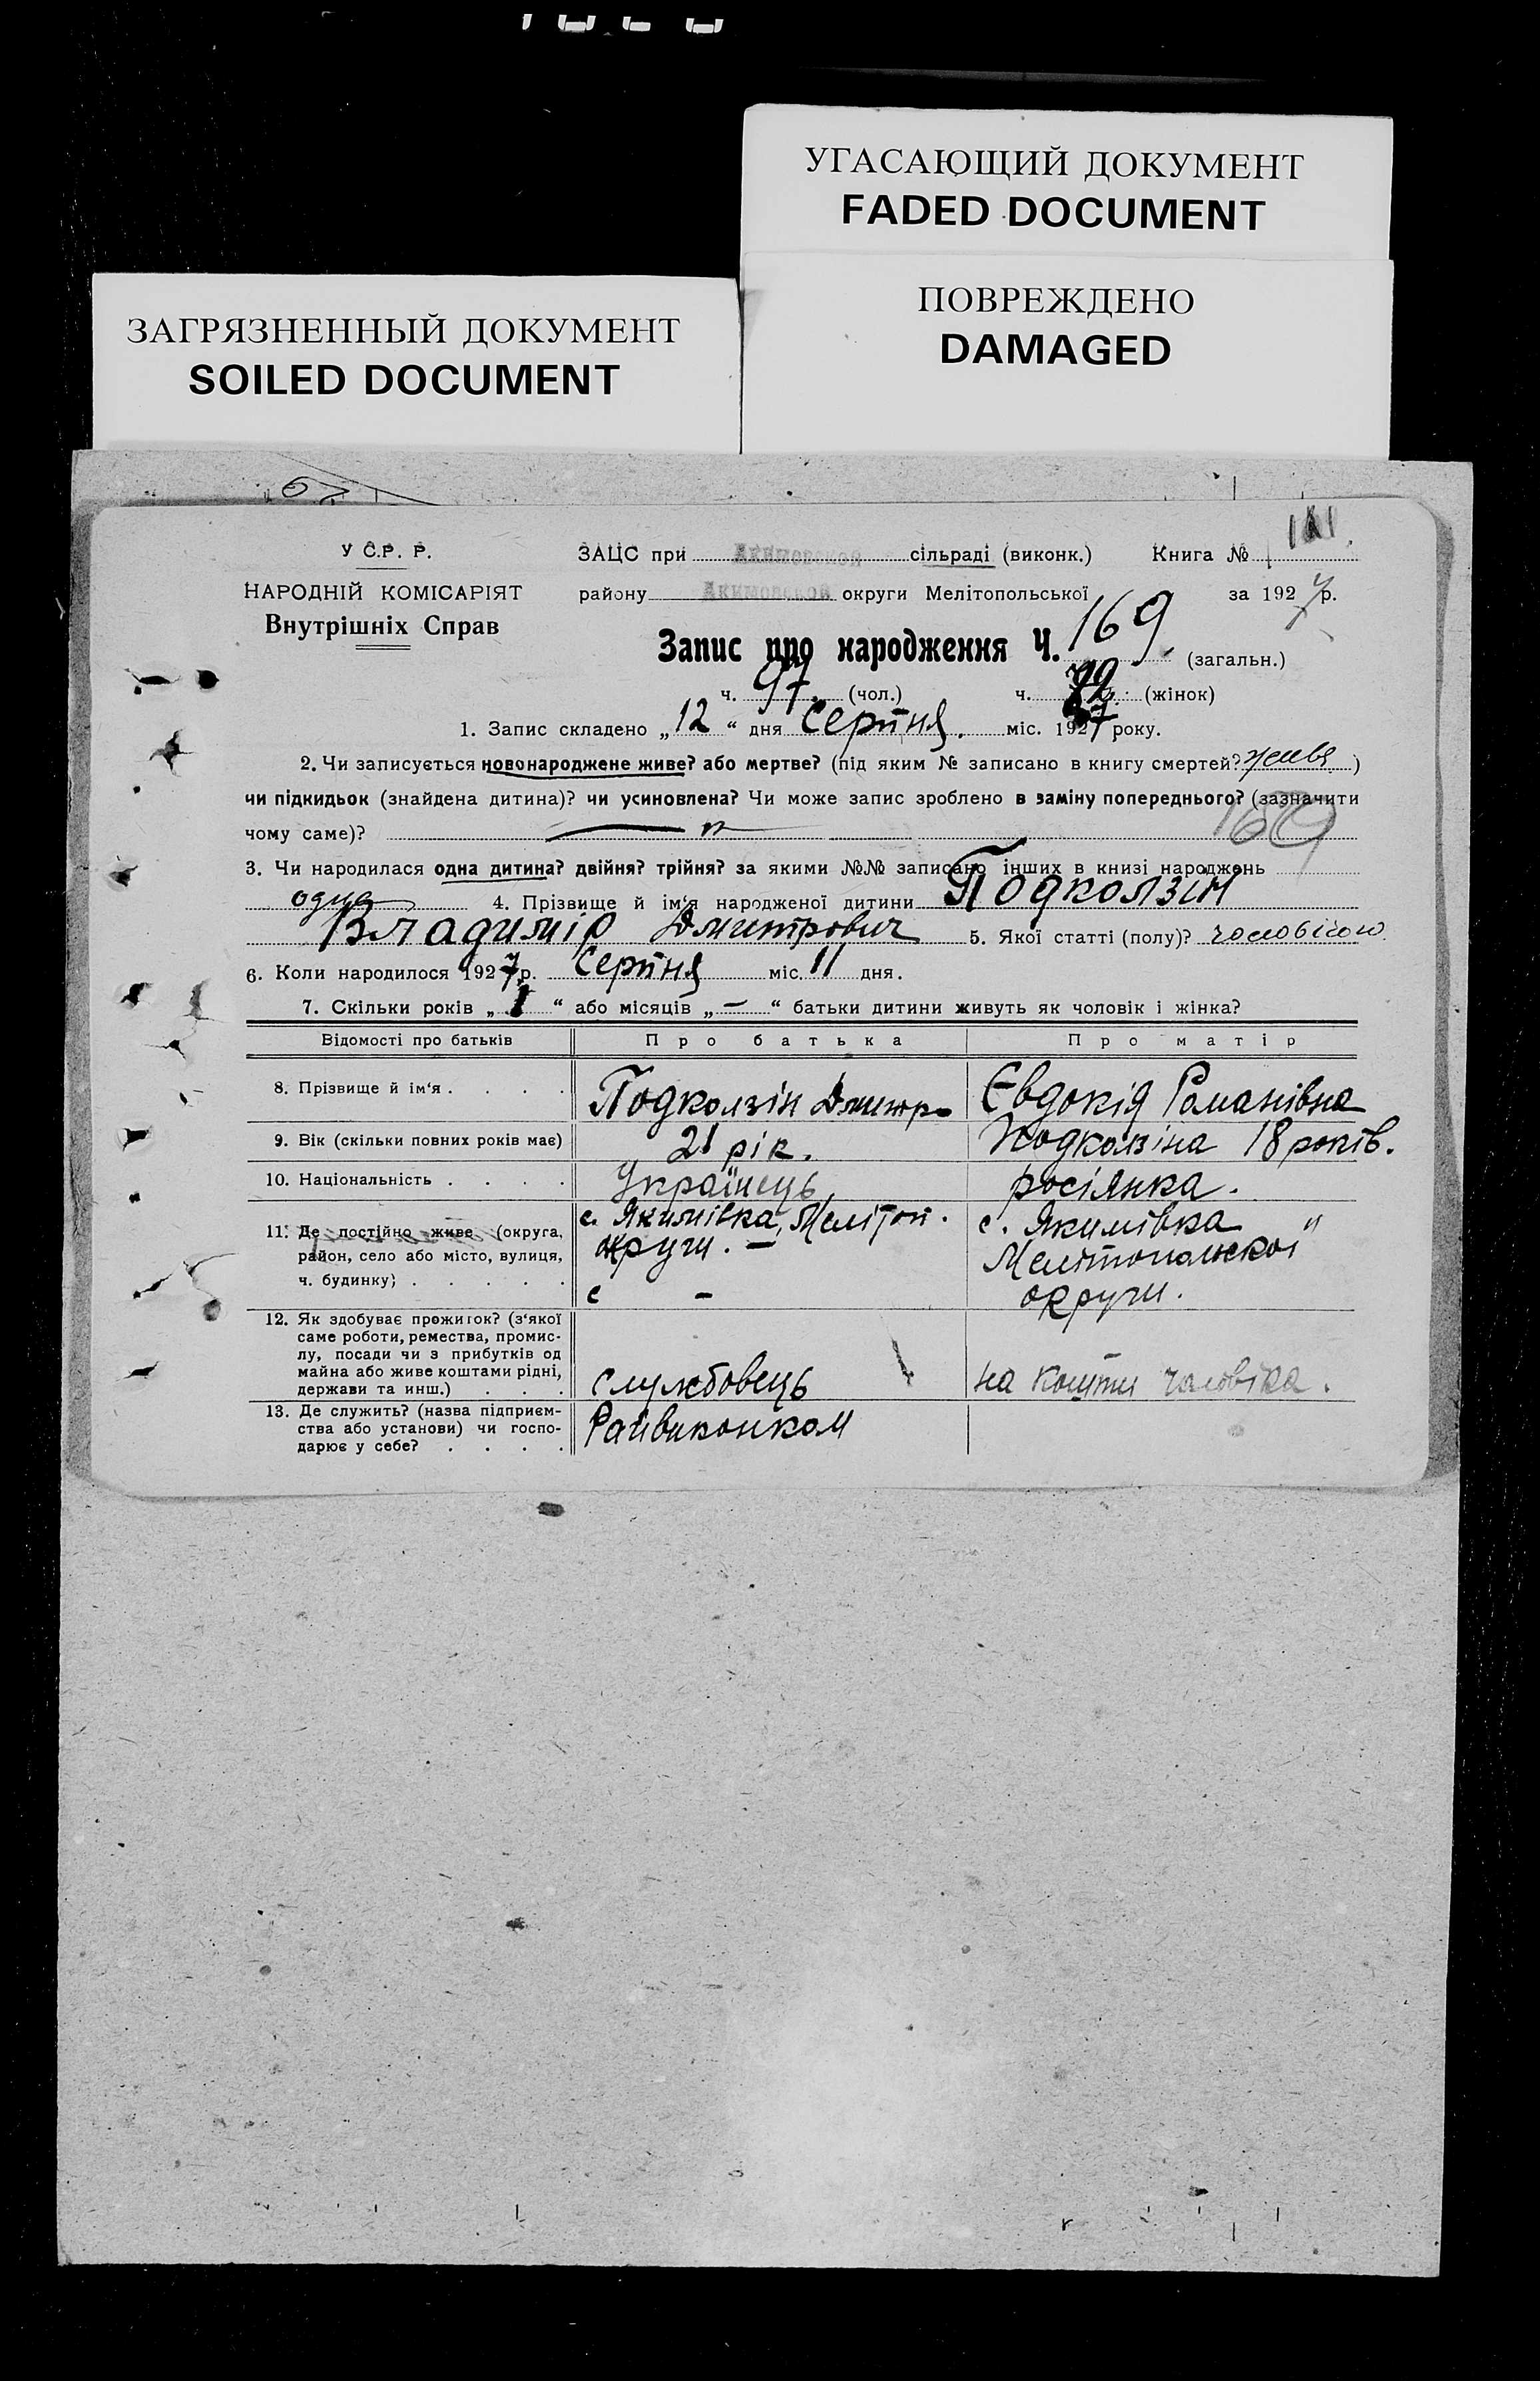 УГАСАЮЩИЙ ДОКУМЕНТ
FADED DOCUMENT
ПОВРЕЖДЕНО
DAMAGED
ЗАГРЯЗНЕННЫЙ ДОКУМЕНТ
SOILED DOCUMENT
У С.Р. Р.
НАРОДНІЙ КОМІСАРІЯТ
Внутрішніх Справ
ЗАЦС при Акимовской сільраді (виконк.) Книга №
району Акимовской округи Мелітопольської за 1927 р.
Запис про народження Ч. 169 (загальн.)
ч. 97. (чол.) ч. 72 (жінок)
1. Запис складено „12“ дня Серпня. міс. 1927 року.
2. Чи записується новонароджене живе? або мертве? (під яким № записано в книгу смертей? живе)
чи підкидьок (знайдена дитина)? чи усиновлена? Чи може запис зроблено в заміну попереднього? (зазначити
чому саме)?
169
3. Чи народилася одна дитина? двійня? трійня? за якими №№ записано інших в книзі народжень
одна 4. Прізвище й ім'я народженої дитини Подколзін
Владимір Дмитрович 5. Якої статті (полу)? чоловічою
6. Коли народилося 1927 р. Серпня міс. 11 дня.
7. Скільки років „1“ або місяців „—“ батьки дитини живуть як чоловік і жінка?
Відомості про батьків Про батька Про матір
8. Прізвище й ім'я . . . . Подколзін Дмитро Євдокія Романівна
9. Вік (скільки повних років має) 21 рік. Подколзіна 18 років.
10. Національність . . . . Українець росіянка.
11. Де постійно живе (округа, район, село або місто, вулиця, ч. будинку) . . . . .
с. Якимівка, Мелітоп.
округи. —
с —
с. Якимівка "
Мелітопольскої
округи.
12. Як здобуває прожиток? (з'якої
саме роботи, ремества, промис-
лу, посади чи з прибутків од
майна або живе коштами рідні,
держави та инш.) . . .
службовець на кошти чоловіка.
13. Де служить? (назва підприєм-
ства або установи) чи госпо-
дарює у себе? . . . .
Райвиконком